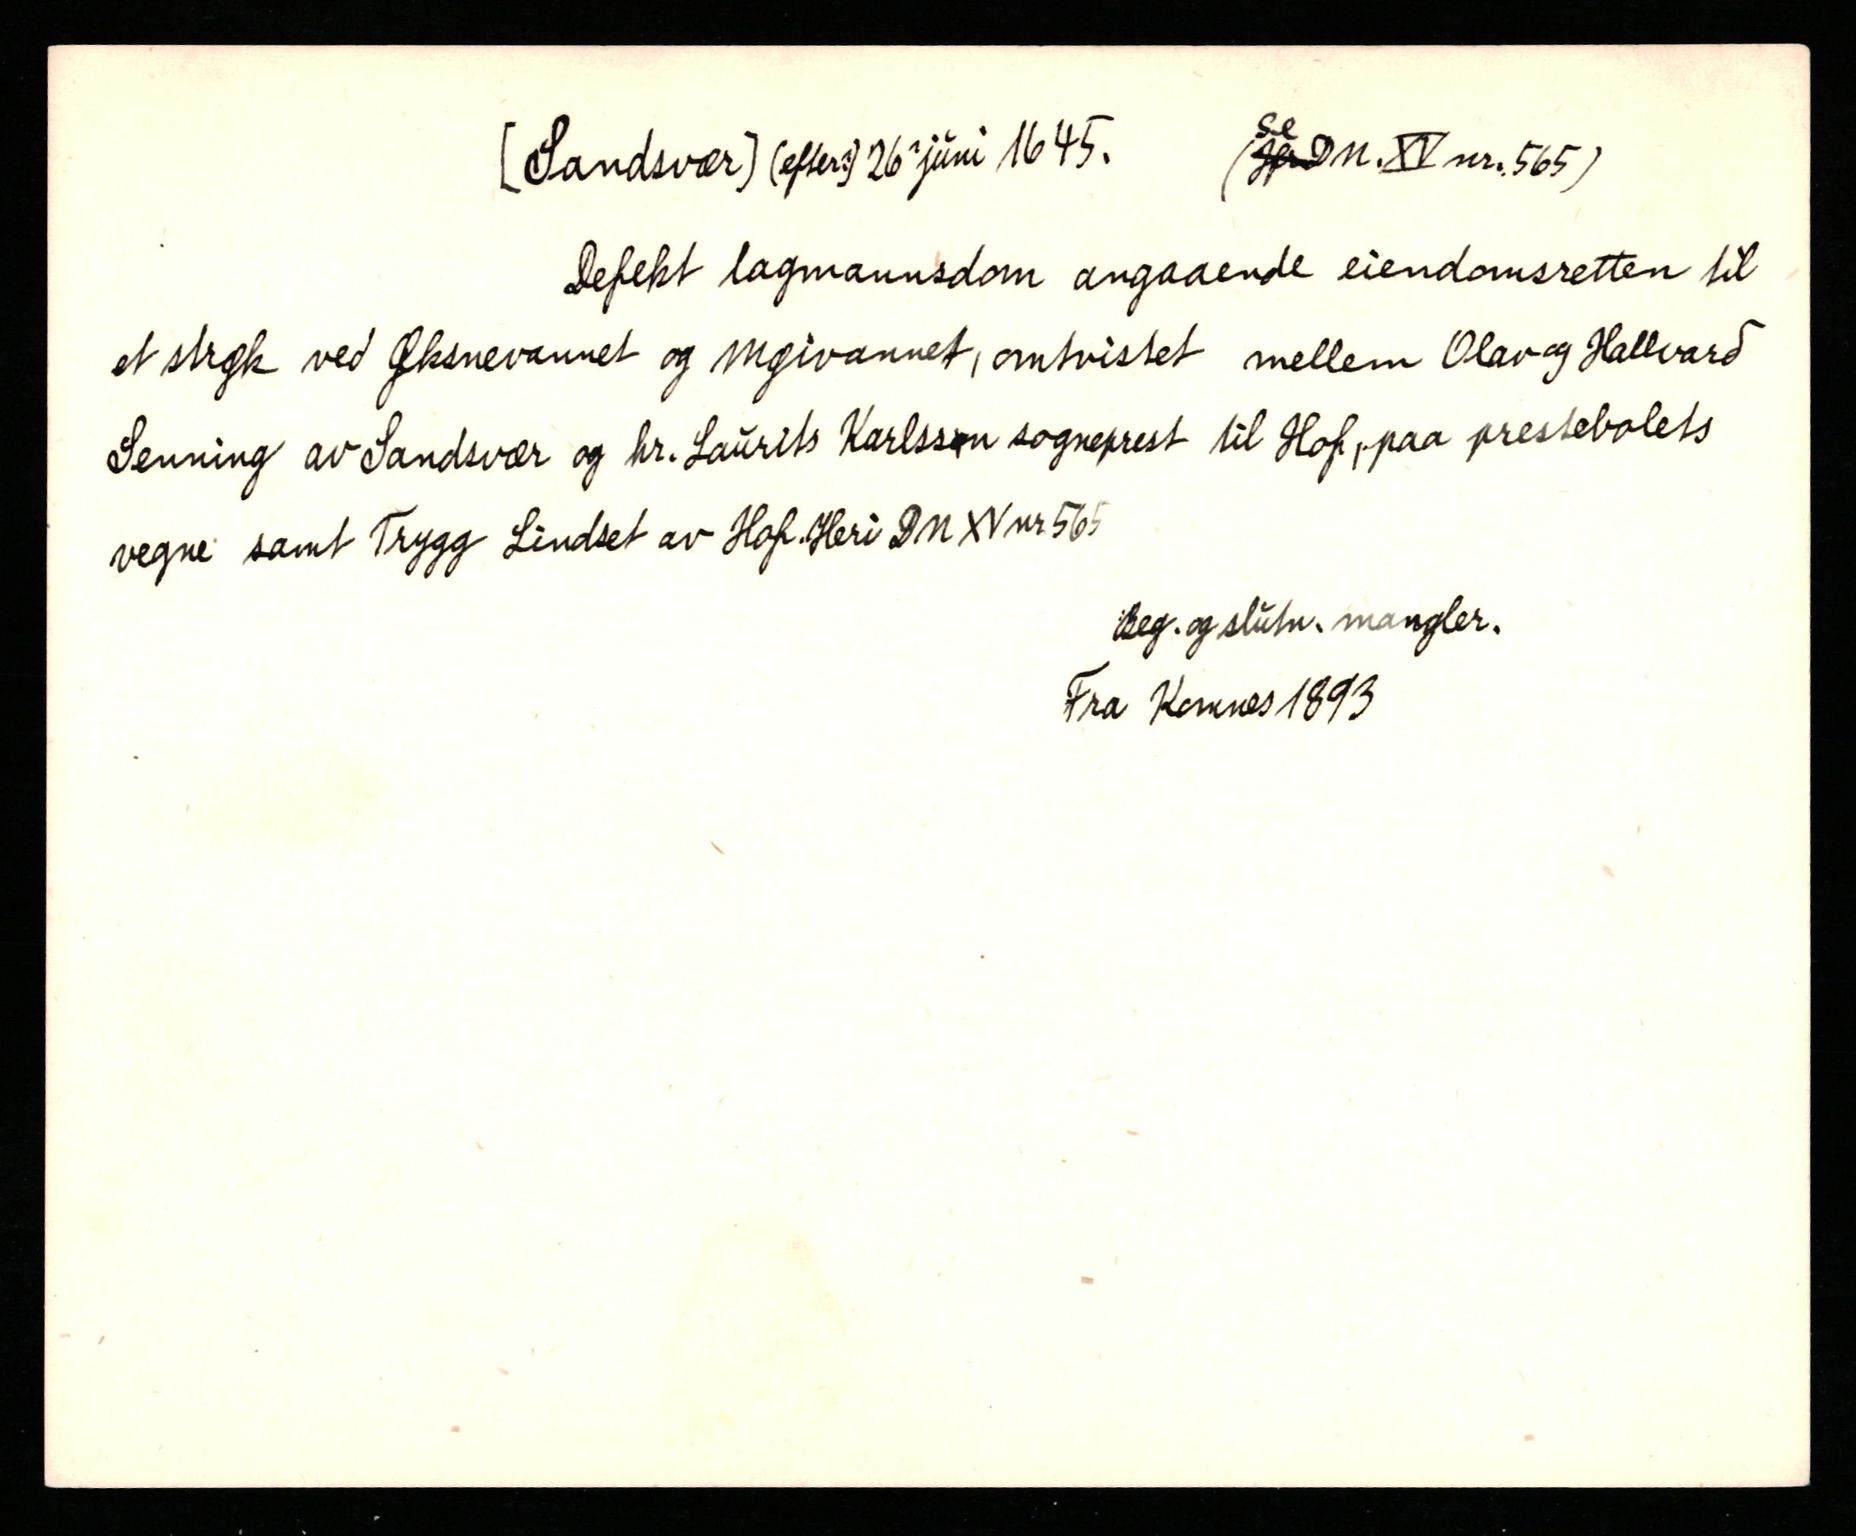 [Sandsvær] (efter?) 26 juni 1645. (se DN. XV nr. 565)
Defekt lagmannsdom angaaende eiendomsretten til
et strøk ved Øksnevannet og Møivannet, omtvistet mellem Olav og Hallvard
Senning av Sandsvær og hr. Laurits Karlssøn sogneprest til Hof, paa prestebolets
vegne samt Trygg Lindset av Hof. Heri DN XV nr 565
Beg. og slutn. mangler.
Fra Komnes 1893